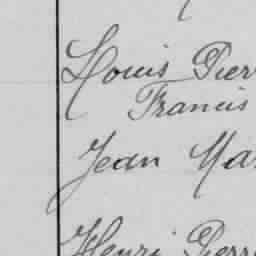 Louis Pier
Francis
Jean Ma
Henri Pierr